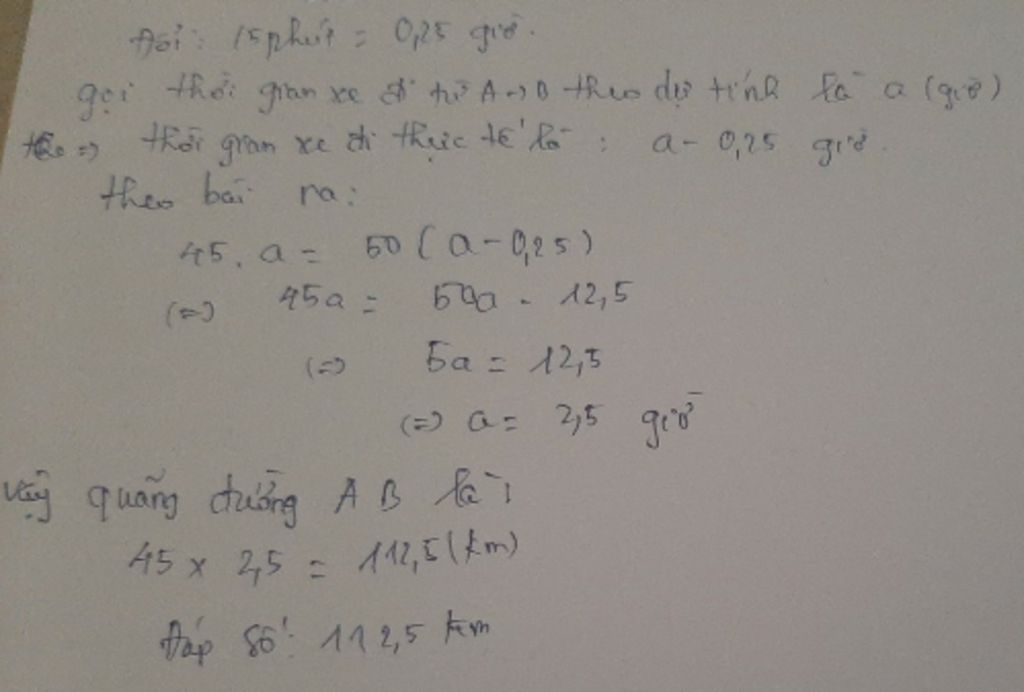 Đổi: 15 phút = 0,25 giờ.
gọi thời gian xe đi từ A → B theo dự tính là a (giờ)
=> thời gian xe đi thực tế là : a - 0,25 giờ.
theo bài ra:
45. a = 50 ( a - 0,25)
(=) 45a = 50a - 12,5
(=) 5a = 12,5
(=) a = 2,5 giờ
Vậy quãng đường AB là:
45 x 2,5 = 112,5 (km)
Đáp số: 112,5 km